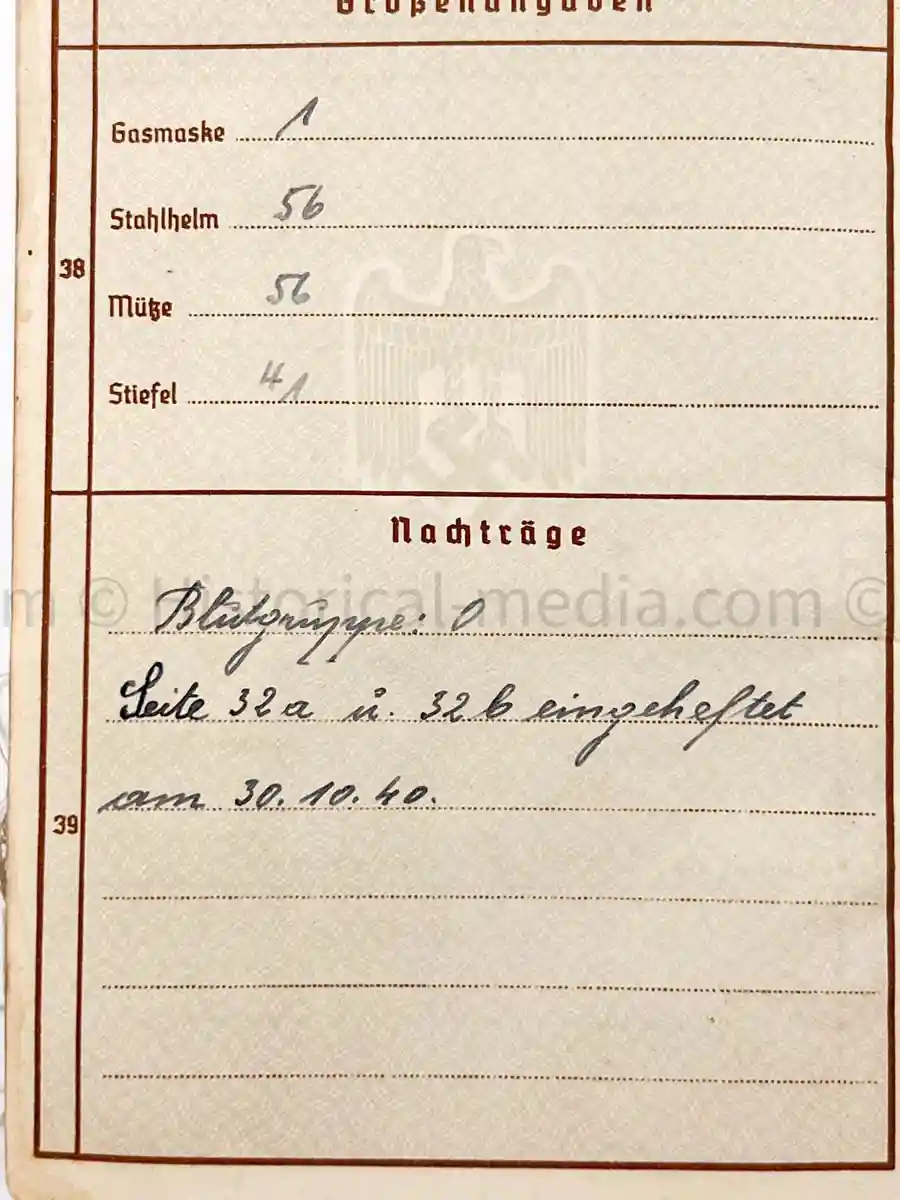 Größenangaben
38
Gasmaske 1
Stahlhelm 56
Mütze 56
Stiefel 41
39
Nachträge
m © Historical-media.com ©
Blutgruppe: O
Seite 32a u. 32b eingeheftet
am 30.10.40.